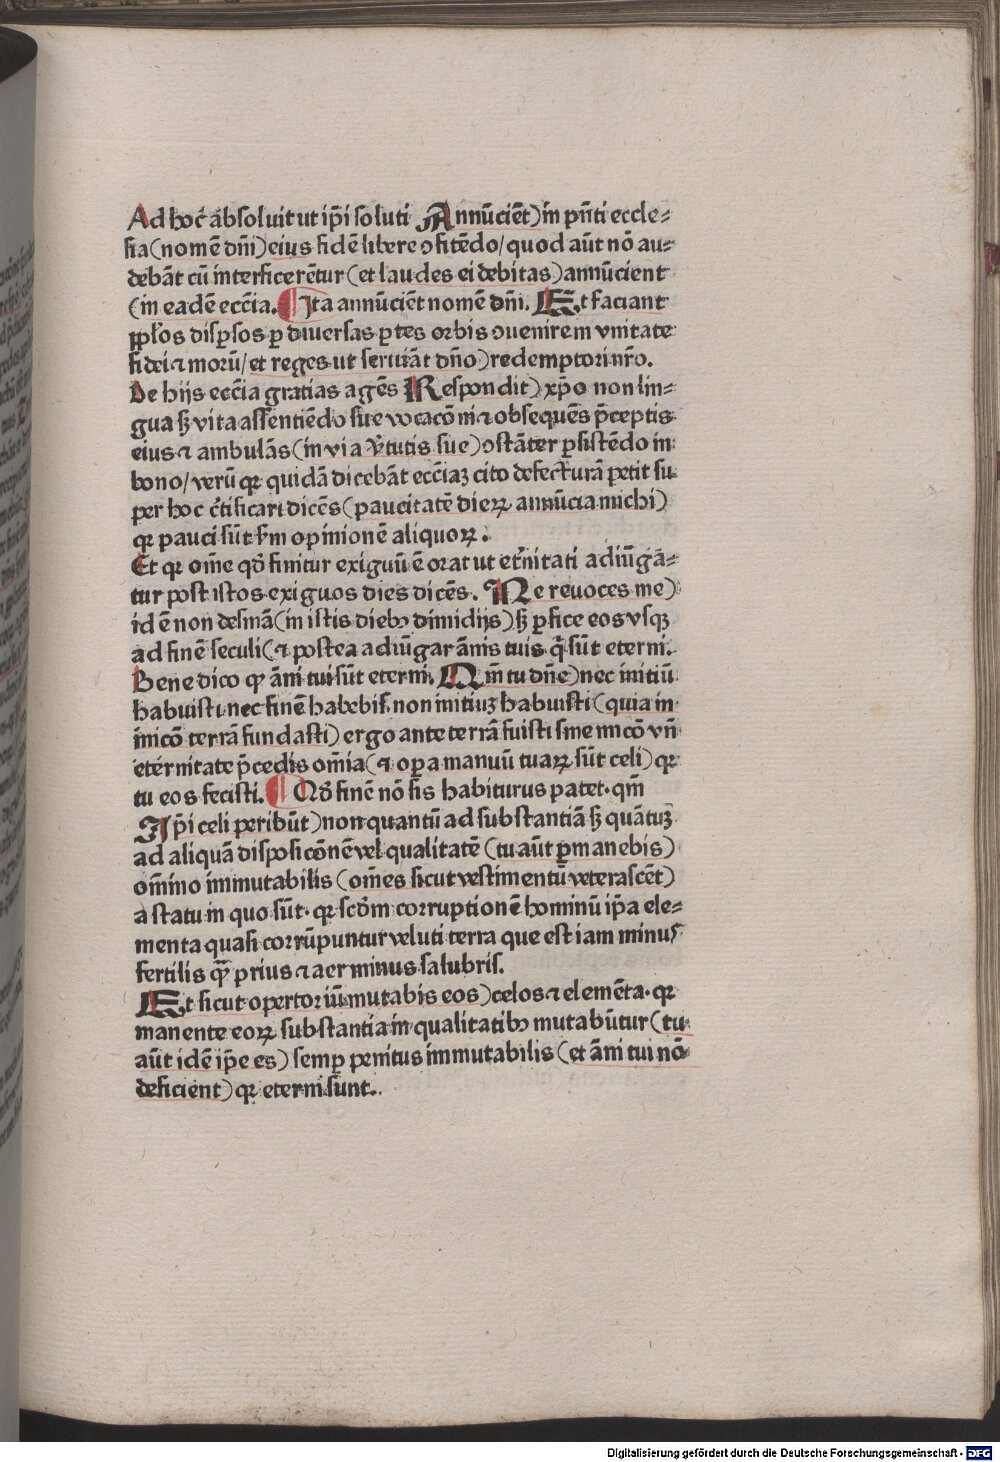 Ad hoc̄ ābsoluit ut ip̄i soluti Annūciēt) in pn̄ti eccle⸗
sia (nomē dn̄i) eius fidē libere ↄfitēdo/ quod aūt nō au⸗
debāt cū interficerētur (et laudes ei debitas) annūcient
(in eadē ecc̄ia. Ita annūciēt nomē dn̄i. Et faciant
pp̄los disꝑsos ꝑ diuersas ꝑtes orbis ↄuenire in vnitate
fidei ⁊ morū/ et reges ut seruiāt dn̄o) redemptori nr̄o.
De hijs ecc̄ia gratias agēs Respondit) xp̄o non lin⸗
gua sꝫ vita assentiēdo sue vocacōni ⁊ obsequēs p̄ceptis
eius ⁊ ambulās (in via v̄tutis sue) ↄstāter ꝑsistēdo in
bono/ verū qꝛ quidā dicebāt ecc̄iaꝫ cito defecturā petit su
per hoc c̄tificari dicēs (paucitatē dieꝝ annūcia michi)
qꝛ pauci sūt s̄m opinionē aliquoꝝ.
Et qꝛ om̄e qd̄ finitur exiguū ē orat ut et̄nitati adiūgā⸗
tur post istos exiguos dies dicēs. Ne reuoces me)
id ē non desinā (in istis diebꝰ dimidijs) sꝫ ꝑfice eos vsqꝫ
ad finē seculi (⁊ postea adiūgar ānis tuis q̄ sūt eterni.
Bene dico ꝙ āni tui sūt eterni. Nm̄ tu dn̄e) nec initiū
habuisti nec finē habebis. non initiuꝫ habuisti (quia in
inicō terrā fundasti) ergo ante terrā fuisti sine inicō vn̄
eternitate p̄cedis om̄ia (⁊ oꝑa manuū tuaꝝ sūt celi) qꝛ
tu eos fecisti. Qd̄ finē nō sis habiturus patet. qm̄
Ip̄i celi peribūt) non quantū ad substantiā sꝫ quātuꝫ
ad aliquā disposicōnē vel qualitatē (tu aūt ꝑmanebis)
om̄ino immutabilis (om̄es sicut vestimentū veterascēt)
a statu in quo sūt. qꝛ scd̄m corruptionē hominū ip̄a ele⸗
menta quasi corrūpuntur veluti terra que est iam minus
fertilis qꝫ̄ prius ⁊ aer minus salubris.
Et sicut opertoriū mutabis eos) celos ⁊ elemēta. qꝛ
manente eoꝝ substantia in qualitatibꝰ mutabūtur (tu
aūt idē ip̄e es) semꝑ penitus immutabilis (et āni tui nō
deficient) qꝛ eterni sunt.
Digitalisierung gefördert durch die Deutsche Forschungsgemeinschaft - DFG